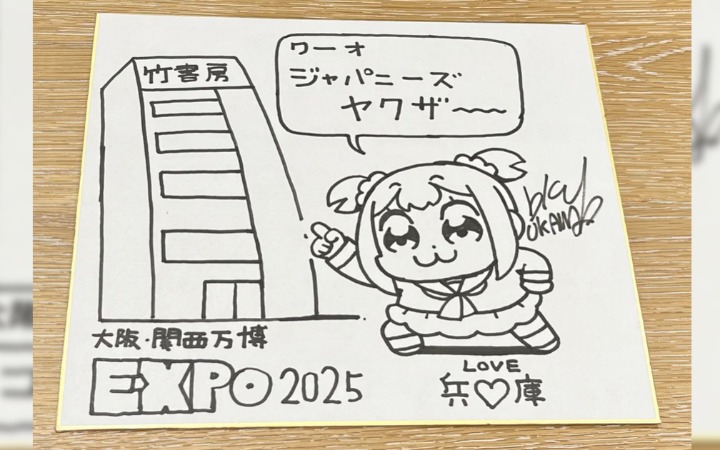 竹書房
ワーオ
ジャパニーズ
ヤクザ〜〜
大阪・関西万博
EXPO 2025
LOVE
兵♡庫
bkub
OKAWA